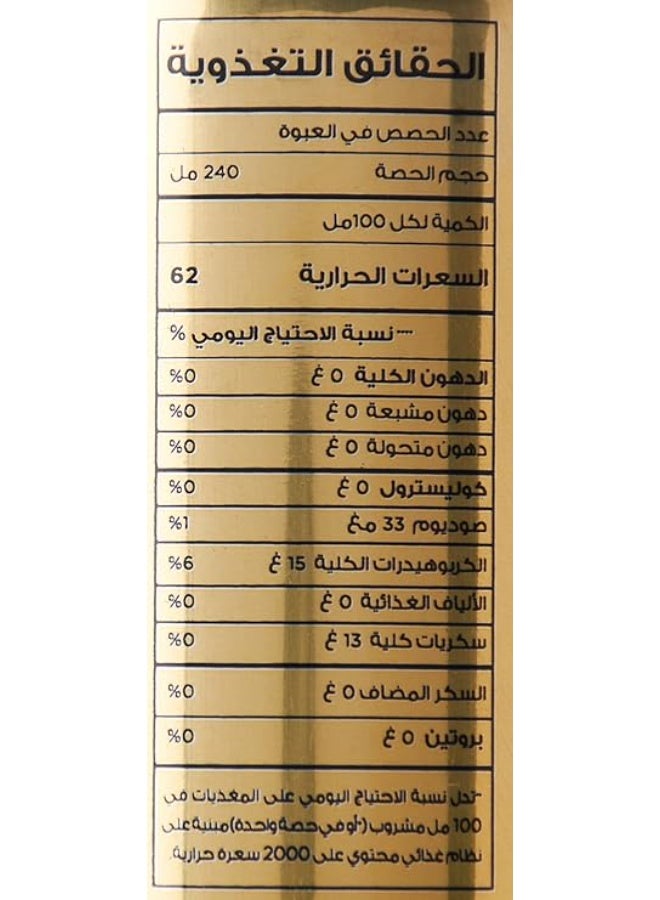 الحقائق التغذوية
عدد الحصص في العبوة
حجم الحصة 240 مل
الكمية لكل 100مل
السعرات الحرارية 62
---نسبة الاحتياج اليومي %
الدهون الكلية 0 غ %0
دهون مشبعة 0 غ %0
دهون متحولة 0 غ %0
كوليسترول 0 غ %0
صوديوم 33 مغ %1
الكربوهيدرات الكلية 15 غ %6
الألياف الغذائية 0 غ %0
سكريات كلية 13 غ %0
السكر المضاف 0 غ %0
بروتين 0 غ %0
-تدل نسبة الاحتياج اليومي على المغذيات في
100 مل مشروب (-أو في حصة واحدة) مبنية على
نظام غذائي محتوي على 2000 سعرة حرارية.